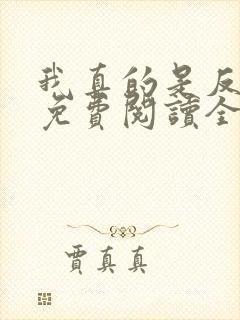 我真的是反
免費閱讀全
賈真真